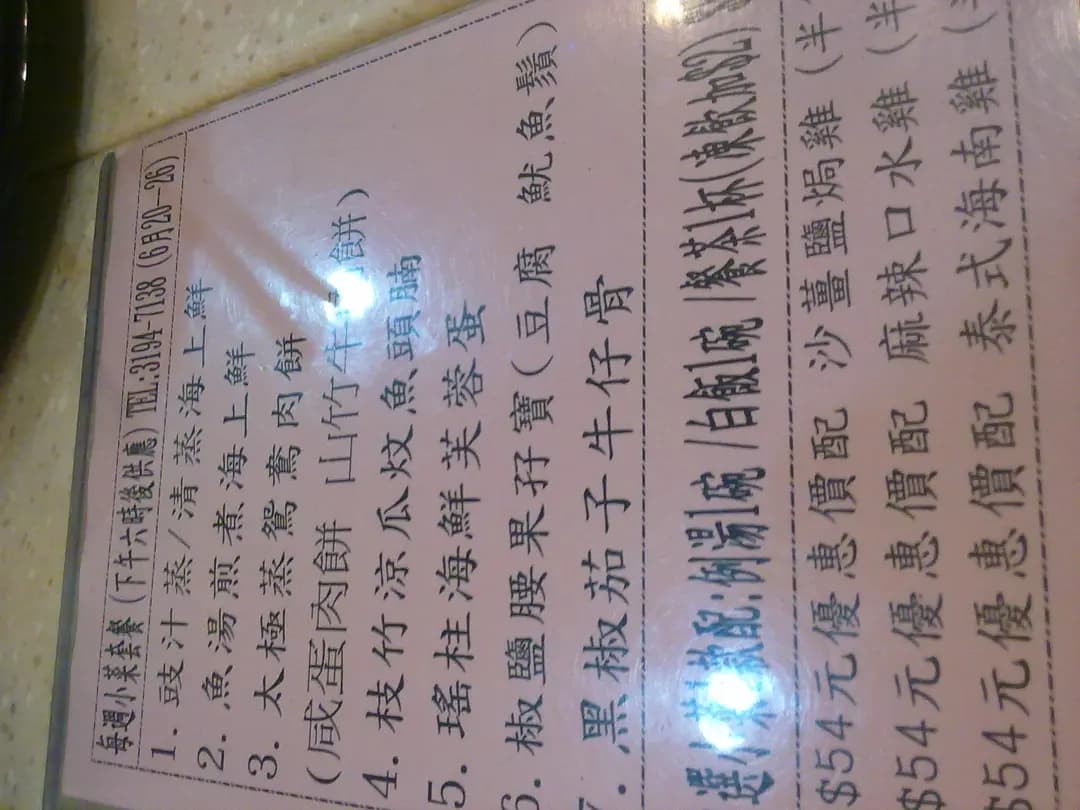 每週小菜套餐(下午六時後供應)TEL:3194-7138(6月20--26)
1. 豉汁蒸/清蒸海上鮮
2. 魚湯煎煮海上鮮
3. 太極蒸鴛鴦肉餅
(咸蛋肉餅 山竹牛 餅)
4. 枝竹涼瓜炆魚頭腩
5. 瑤柱海鮮芙蓉蛋
6. 椒鹽腰果孖寶(豆腐 魷魚鬚)
7. 黑椒茄子牛仔骨
選小菜 配:例湯1碗/白飯1碗/餐茶1杯(凍飲加$2)
$54元優惠價配 沙薑鹽焗雞(半
$54元優惠價配 麻辣口水雞(半
$54元優惠價配 泰式海南雞(